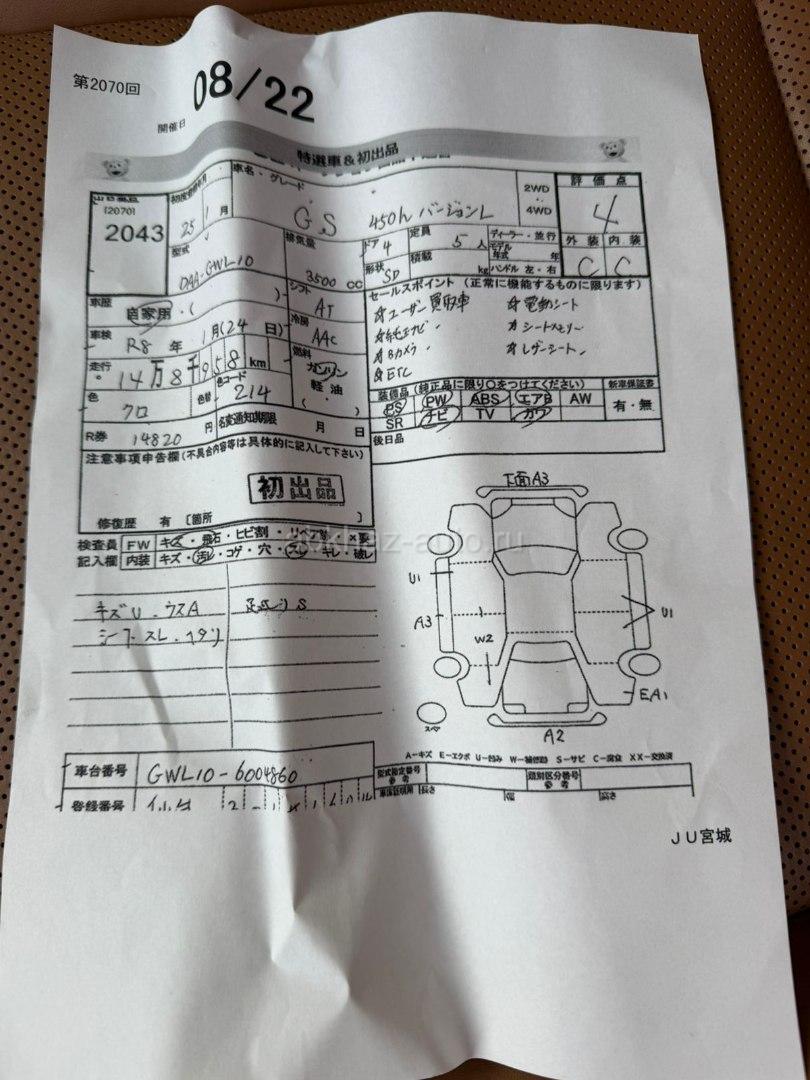 第2070回
08/22
開催日
特選車&初出品
(2070)
2043
初度登録年月
25 1月
車名・グレード
GS 450h バージョンL
2WD
4WD
評価点
4
外装 内装
C C
型式
DAA-GWL10
排気量
3500 cc
ドア 4
形状 SD
定員 5人
積載 kg
ディーラー・並行
モデル年式 年
ハンドル 左・右
車歴
自家用・( )
シフト
AT
セールスポイント (正常に機能するものに限ります)
☆ユーザー買取車
☆電動シート
☆純正ナビ
☆シートメモリー
☆Bカメラ
☆レザーシート
☆ETC
車検
R8年 1月(24日)
冷房
AAC
走行
14万8千958km
燃料
ガソリン
軽油
( )
色
クロ
色替
色コード
214
装備品 (純正品に限り○をつけてください)
新車保証書
PS PW ABS エアB AW
有・無
SR ナビ TV カワ
R券 14820円
名変通知期限 月 日
後日品
注意事項申告欄(不具合内容等は具体的に記入して下さい)
初出品
修復歴 有 [箇所 ]
検査員
記入欄
FW キズ・飛石・ヒビ割・リペア
内装 キズ・汚レ・コゲ・穴・スレ・キレ・破レ
キズU.ウスA
シートスレ.ヘタリ
下廻りS
下面A3
U1
A3
W2
U1
EA1
スペア
A2
A-キズ E-エクボ U-凹み W-補修跡 S-サビ C-腐食 XX-交換済
車台番号
GWL10-6004860
型式指定番号
参考
類別区分番号
参考
登録番号
長さ
幅
高さ
JU宮城